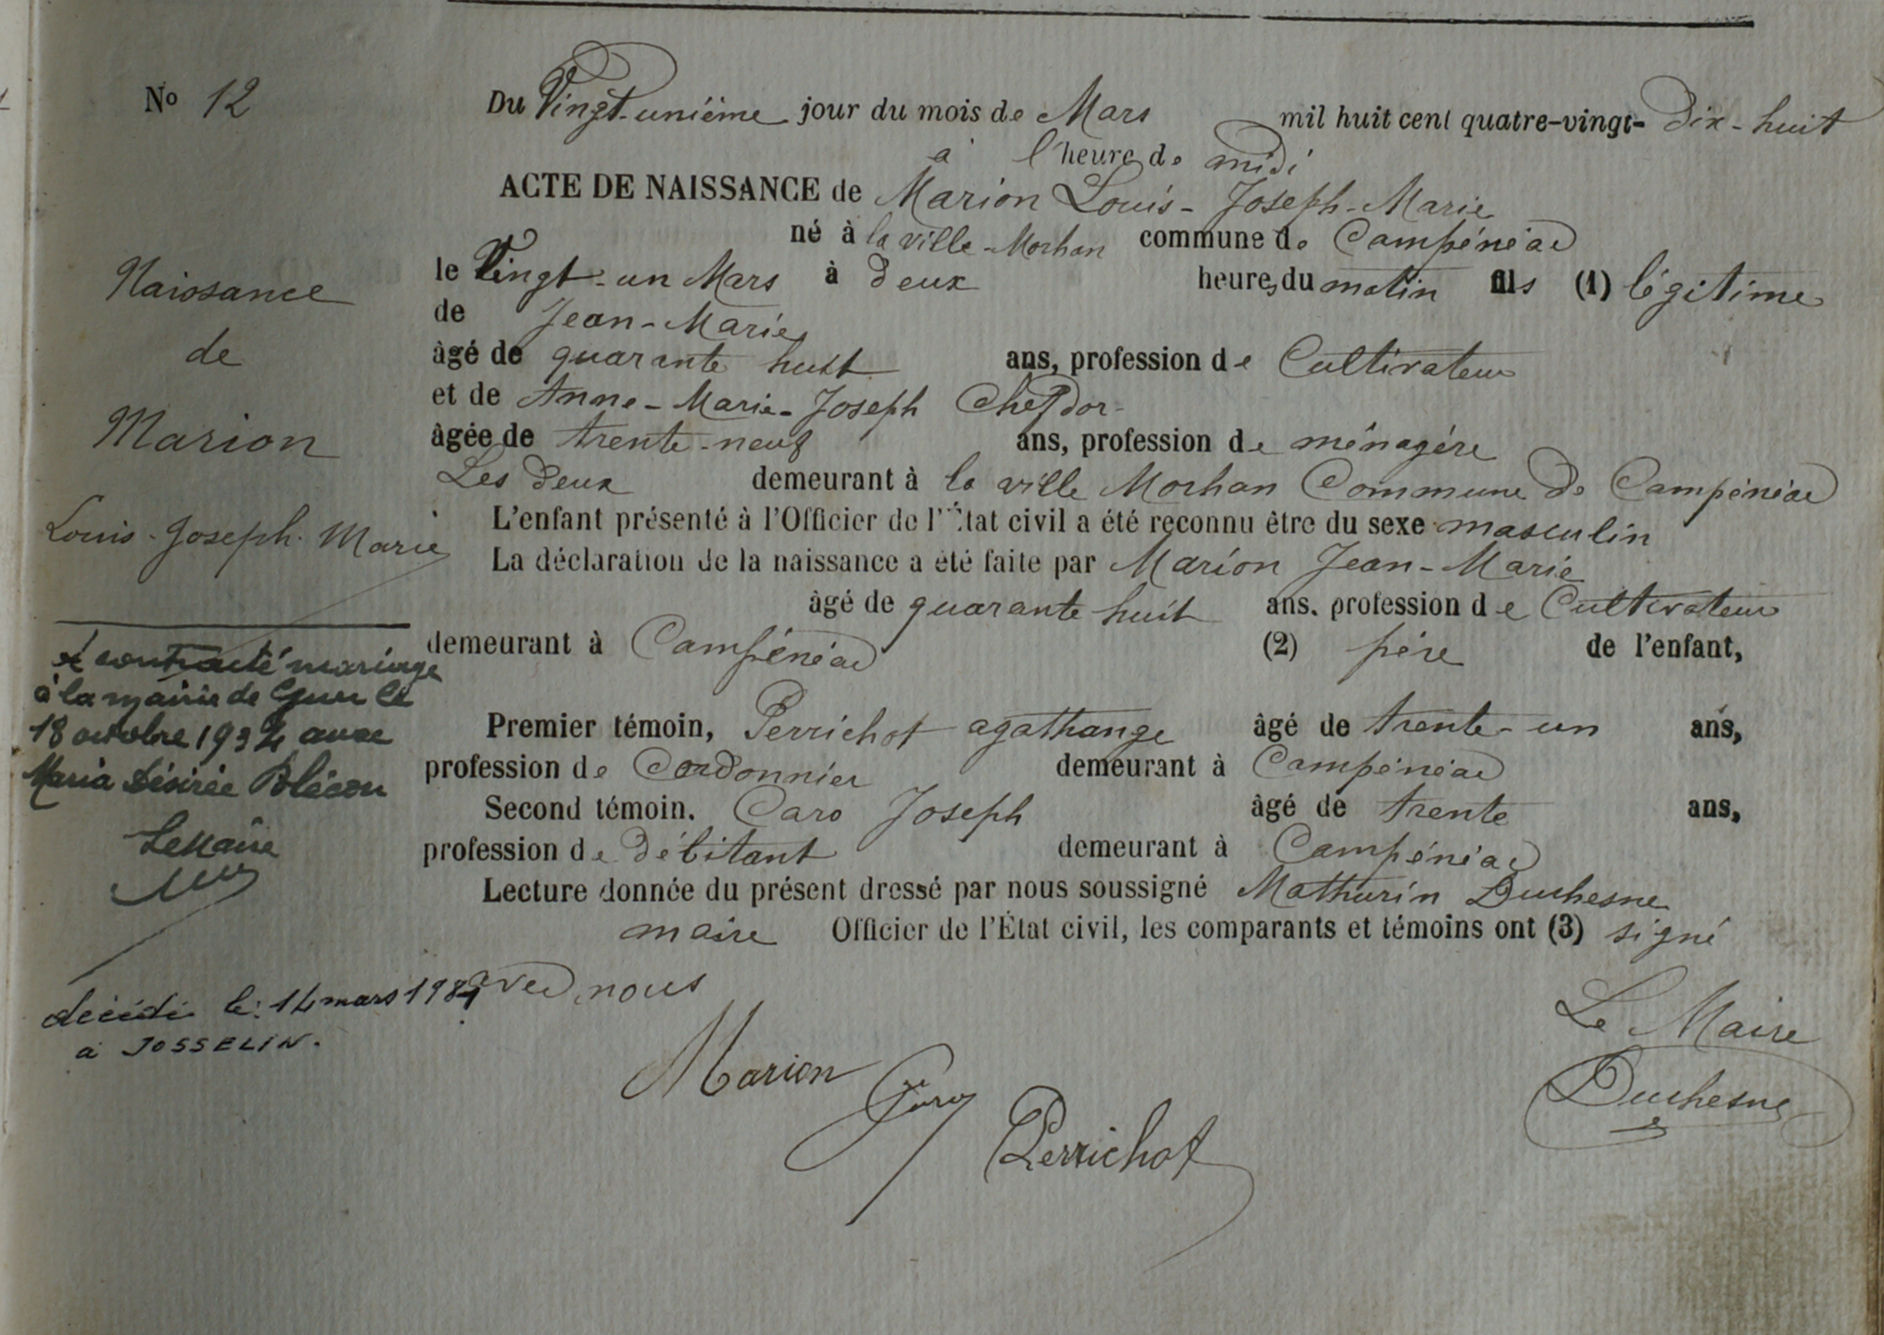 No 12
Du Vingt-unième jour du mois de Mars mil huit cent quatre-vingt-dix-huit
à l'heure de midi
ACTE DE NAISSANCE de Marion Louis-Joseph-Marie
né à la ville-Morhan commune de Campénéac
le Vingt-un Mars à deux heures du matin fils (1) légitime
de Jean-Marie
âgé de quarante huit ans, profession de Cultivateur
et de Anne-Marie-Joseph Chefdor
âgée de trente-neuf ans, profession de ménagère
Les deux demeurant à la ville Morhan Commune de Campénéac
L'enfant présenté à l'Officier de l'État civil a été reconnu être du sexe masculin
La déclaration de la naissance a été faite par Marion Jean-Marie
âgé de quarante huit ans, profession de Cultivateur
demeurant à Campénéac (2) père de l'enfant,
Premier témoin, Perrichot agathange âgé de trente-un ans,
profession de Cordonnier demeurant à Campénéac
Second témoin. Caro Joseph âgé de trente ans,
profession de débitant demeurant à Campénéac
Lecture donnée du présent dressé par nous soussigné Mathurin Duchesne
maire Officier de l'État civil, les comparants et témoins ont (3) signé
avec nous
Marion
Caro
Perrichot
Le Maire
Duchesne
Naissance
de
Marion
Louis-Joseph-Marie
A contracté mariage
à la mairie de Guer le
18 octobre 1934 avec
Maria Désirée Blécon
Le Maire
décédé le: 14 mars
à JOSSELIN.